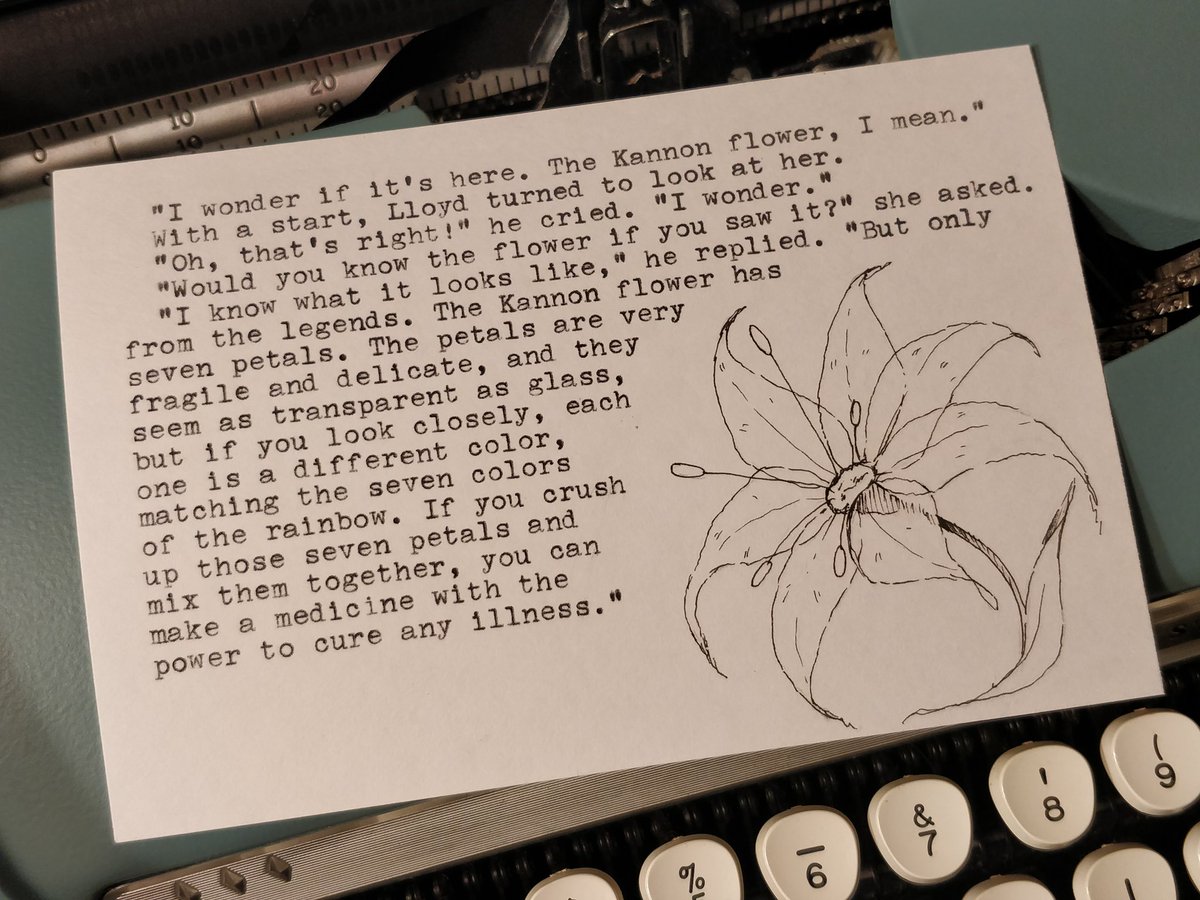 "I wonder if it's here. The Kannon flower, I mean."
With a start, Lloyd turned to look at her.
"Oh, that's right!" he cried. "I wonder."
"Would you know the flower if you saw it?" she asked.
"I know what it looks like," he replied. "But only
from the legends. The Kannon flower has
seven petals. The petals are very
fragile and delicate, and they
seem as transparent as glass,
but if you look closely, each
one is a different color,
matching the seven colors
of the rainbow. If you crush
up those seven petals and
mix them together, you can
make a medicine with the
power to cure any illness."
0 10 20
10 20
30
% & ' (
_
6 7 8 9